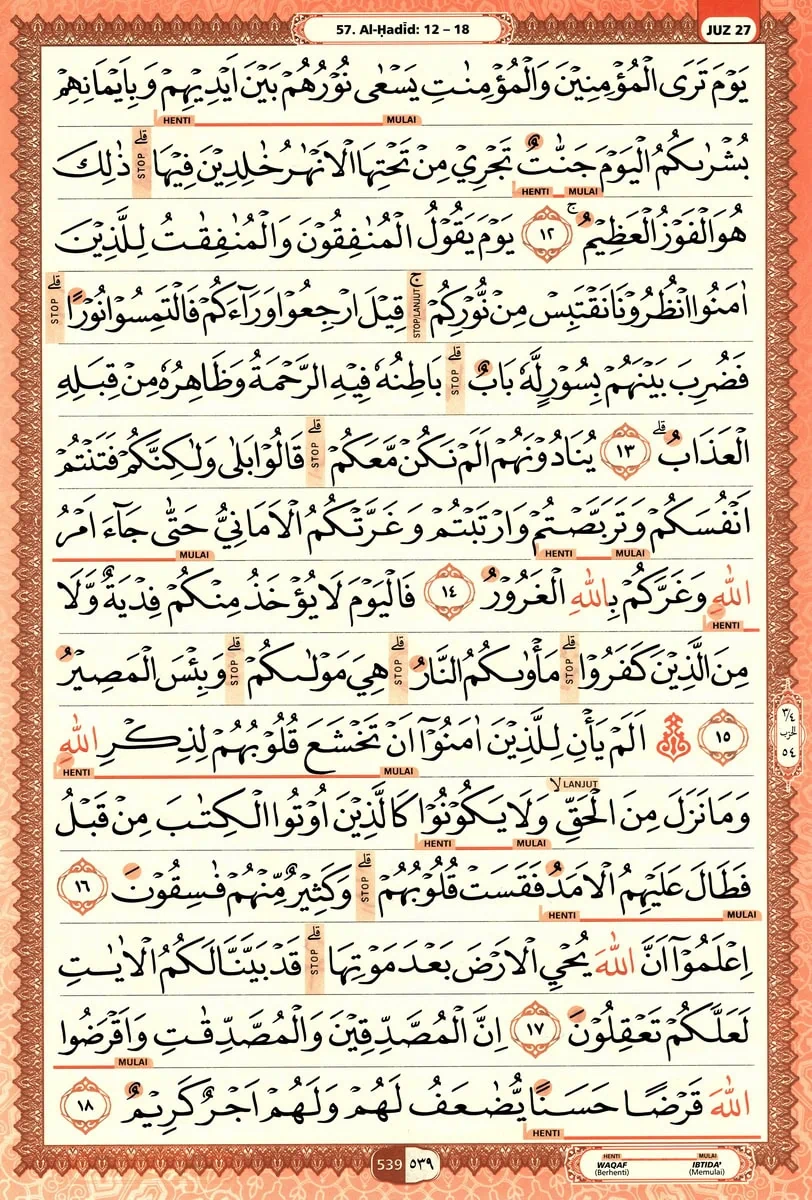 57. Al-Ḥadīd: 12 – 18
JUZ 27
يَوْمَ تَرَى الْمُؤْمِنِيْنَ وَالْمُؤْمِنٰتِ يَسْعٰى نُوْرُهُمْ بَيْنَ اَيْدِيْهِمْ وَبِاَيْمَانِهِمْ
HENTI MULAI
بُشْرٰىكُمُ الْيَوْمَ جَنّٰتٌ تَجْرِيْ مِنْ تَحْتِهَا الْاَنْهٰرُ خٰلِدِيْنَ فِيْهَاۗ STOP ذٰلِكَ
HENTI MULAI
هُوَ الْفَوْزُ الْعَظِيْمُۚ ١٢ يَوْمَ يَقُوْلُ الْمُنٰفِقُوْنَ وَالْمُنٰفِقٰتُ لِلَّذِيْنَ
اٰمَنُوا انْظُرُوْنَا نَقْتَبِسْ مِنْ نُّوْرِكُمْۚ STOP/LANJUT قِيْلَ ارْجِعُوْا وَرَاۤءَكُمْ فَالْتَمِسُوْا نُوْرًاۗ STOP
فَضُرِبَ بَيْنَهُمْ بِسُوْرٍ لَّهٗ بَابٌۗ STOP بَاطِنُهٗ فِيْهِ الرَّحْمَةُ وَظَاهِرُهٗ مِنْ قِبَلِهِ
الْعَذَابُۗ ١٣ يُنَادُوْنَهُمْ اَلَمْ نَكُنْ مَّعَكُمْۗ STOP قَالُوْا بَلٰى وَلٰكِنَّكُمْ فَتَنْتُمْ
اَنْفُسَكُمْ وَتَرَبَّصْتُمْ وَارْتَبْتُمْ وَغَرَّتْكُمُ الْاَمَانِيُّ حَتّٰى جَاۤءَ اَمْرُ
HENTI MULAI MULAI
اللّٰهِ وَغَرَّكُمْ بِاللّٰهِ الْغَرُوْرُ ١٤ فَالْيَوْمَ لَا يُؤْخَذُ مِنْكُمْ فِدْيَةٌ وَّلَا
HENTI
مِنَ الَّذِيْنَ كَفَرُوْاۗ STOP مَأْوٰىكُمُ النَّارُۗ STOP هِيَ مَوْلٰىكُمْۗ STOP وَبِئْسَ الْمَصِيْرُ
١٥ اَلَمْ يَأْنِ لِلَّذِيْنَ اٰمَنُوْٓا اَنْ تَخْشَعَ قُلُوْبُهُمْ لِذِكْرِ اللّٰهِ
HENTI MULAI
وَمَا نَزَلَ مِنَ الْحَقِّۙ LANJUT وَلَا يَكُوْنُوْا كَالَّذِيْنَ اُوْتُوا الْكِتٰبَ مِنْ قَبْلُ
HENTI MULAI
فَطَالَ عَلَيْهِمُ الْاَمَدُ فَقَسَتْ قُلُوْبُهُمْۗ STOP وَكَثِيْرٌ مِّنْهُمْ فٰسِقُوْنَ ١٦
HENTI MULAI
اِعْلَمُوْٓا اَنَّ اللّٰهَ يُحْيِ الْاَرْضَ بَعْدَ مَوْتِهَاۗ STOP قَدْ بَيَّنَّا لَكُمُ الْاٰيٰتِ
لَعَلَّكُمْ تَعْقِلُوْنَ ١٧ اِنَّ الْمُصَّدِّقِيْنَ وَالْمُصَّدِّقٰتِ وَاَقْرَضُوا
MULAI
اللّٰهَ قَرْضًا حَسَنًا يُّضٰعَفُ لَهُمْ وَلَهُمْ اَجْرٌ كَرِيْمٌ ١٨
HENTI
٣/٤
الحزب
٥٤
539 ٥٣٩
HENTI MULAI
WAQAF IBTIDA'
(Berhenti) (Memulai)